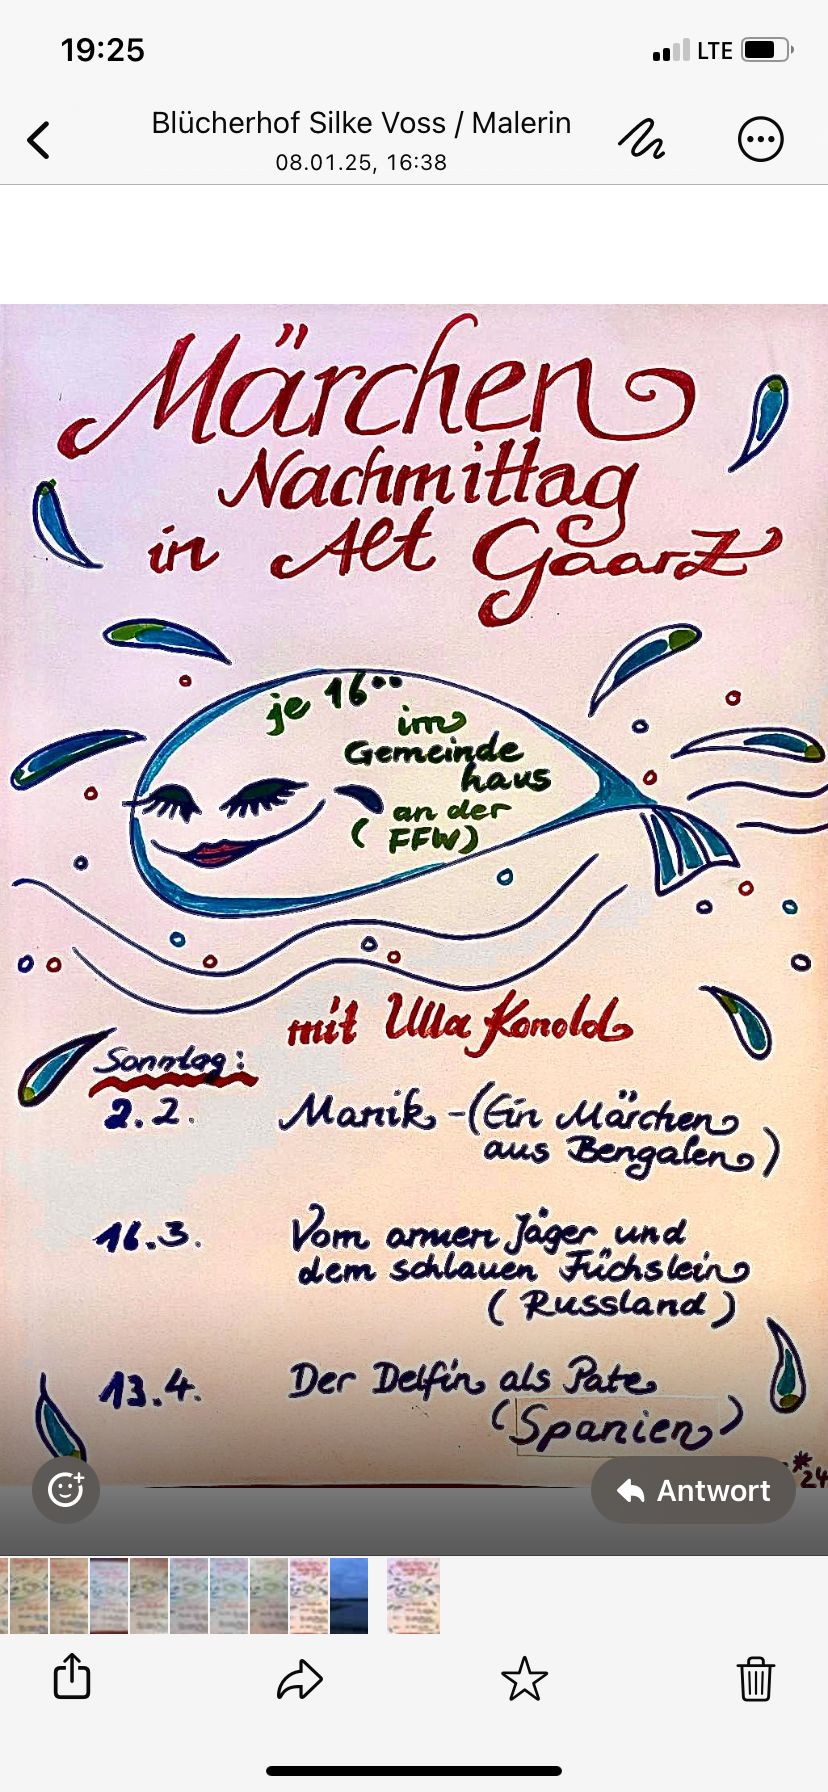 19:25
LTE
Blücherhof Silke Voss / Malerin
08.01.25, 16:38
Märchen
Nachmittag
in Alt Gaarz
je 16⁰⁰
im
Gemeinde
haus
an der
( FFW)
mit Ulla Konold
Sonntag:
2.2. Manik - (Ein Märchen
aus Bengalen)
16.3. Vom armen Jäger und
dem schlauen Füchslein
( Russland )
13.4. Der Delfin als Pate
(Spanien)
*24
Antwort